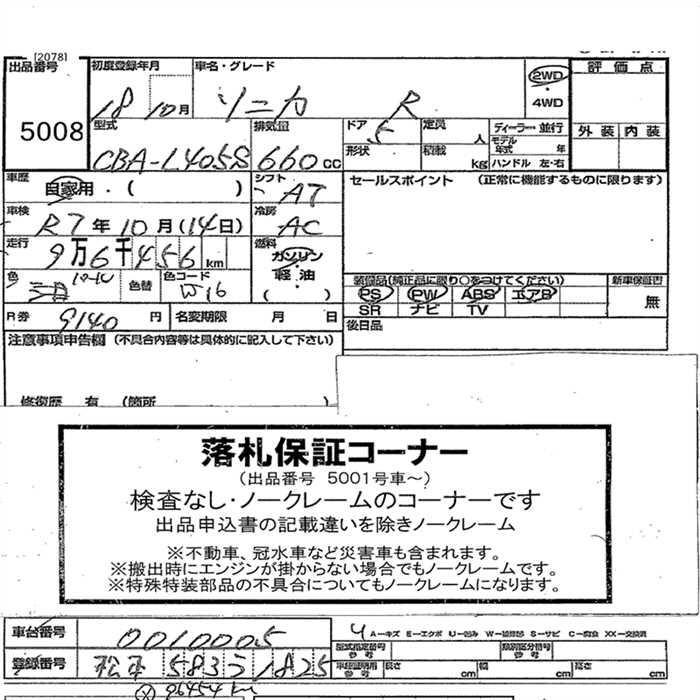 [2078]
出品番号 初度登録年月 車名・グレード 2WD ・ 4WD 評価点
5008 18 10月 ソニカ R 外装 内装
型式 排気量 ドア 定員 ディーラー・並行
CBA-L405S 660 CC 5 人 モデル年式 年
形状 積載 kg ハンドル 左・右
車歴 自家用・( ) シフト AT セールスポイント (正常に機能するものに限ります)
車検 R7年10月(14日) 冷房 AC
走行 9万6千456 km 燃料 ガソリン 軽・油 ( )
色 色替 色コード W16
装備品(純正品に限り○をつけてください) 新車保証書
PS PW ABS エアB 無
SR ナビ TV
R券 9140 円 名変期限 月 日 後日品
注意事項申告欄 (不具合内容等は具体的に記入して下さい)
修復歴 有 (箇所
落札保証コーナー
(出品番号 5001号車~)
検査なし・ノークレームのコーナーです
出品申込書の記載違いを除きノークレーム
※不動車、冠水車など災害車も含まれます。
※搬出時にエンジンが掛からない場合でもノークレームです。
※特殊特装部品の不具合についてもノークレームになります。
車台番号 0010005 A-キズ E-エクボ U-凹み W-補修跡 S-サビ C-腐食 XX-交換済
型式指定番号参考 類別区分番号参考
登録番号 583 1825 車検証明用参考 長さ cm 幅 cm 高さ cm
96454 km